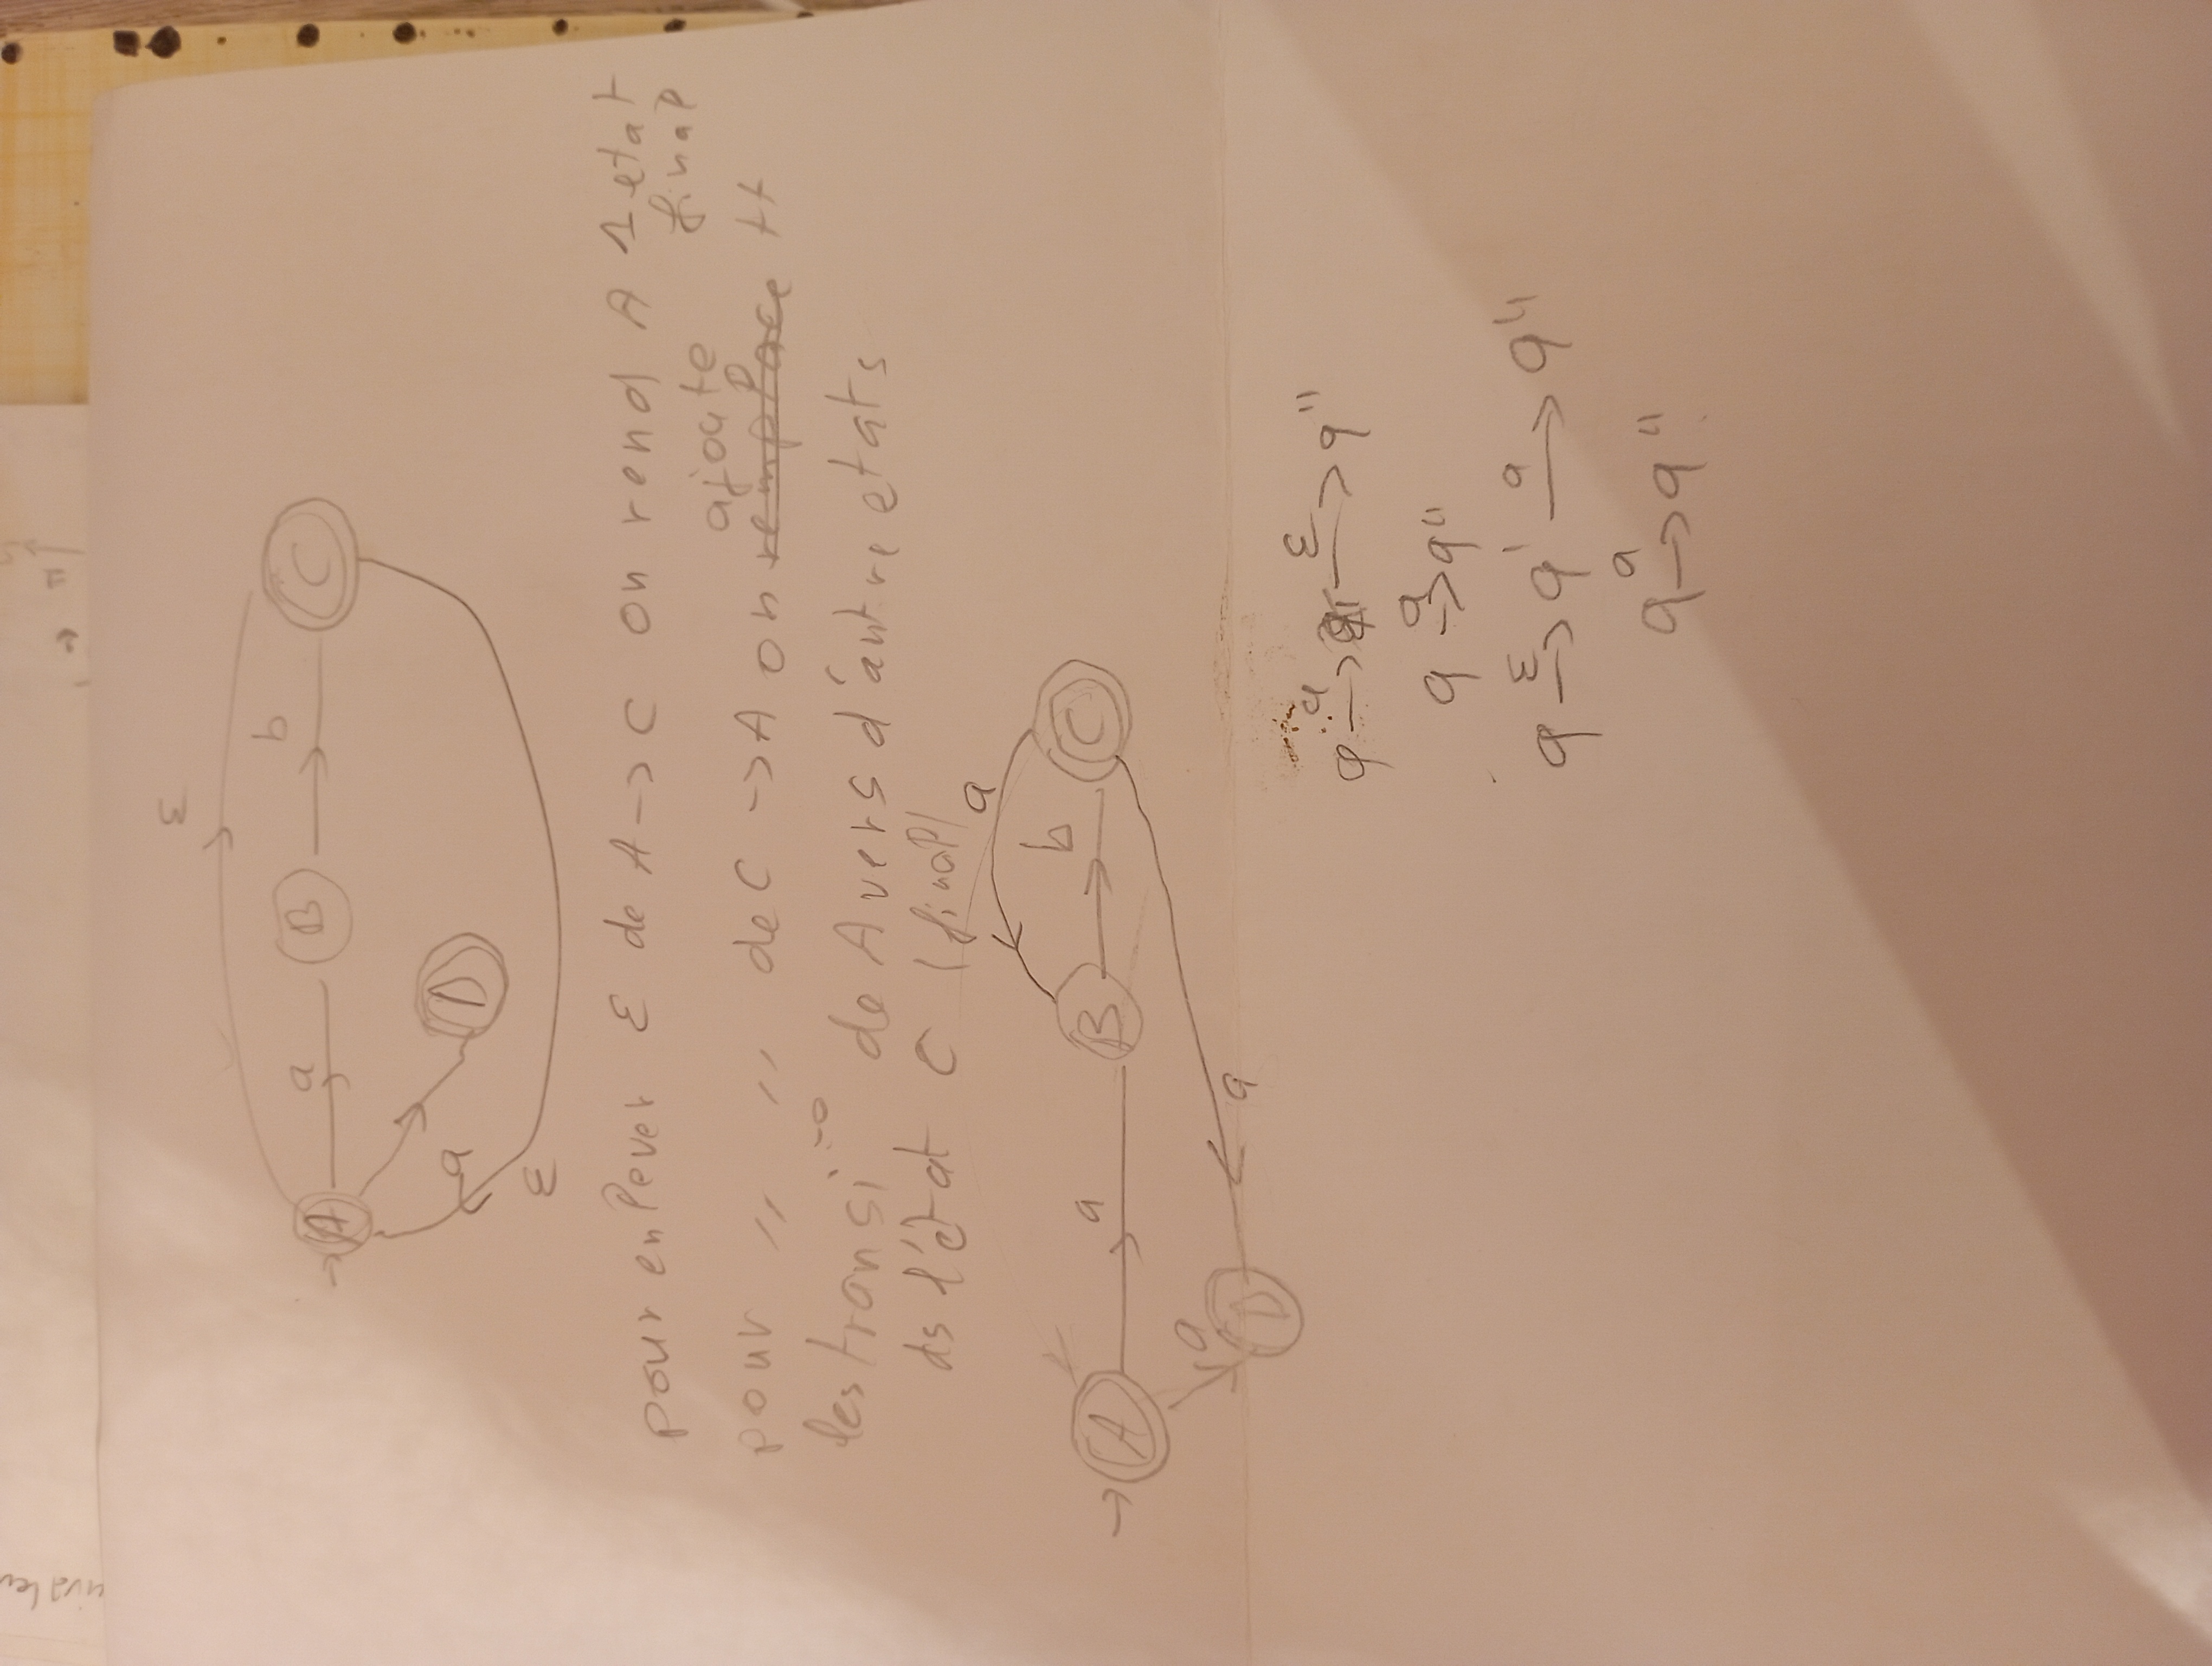 ε
a
b
A
B
C
a
D
ε
pour enlever ε de A → C on rend A 1 etat
final
ajoute
pour 〃 〃 de C → A on remplace tt
les transi° de A vers d'autre etats
ds l'état C (final)
a
b
A
a
B
C
a
D
a
q a→ q' ε→ q"
q a→ q"
q ε→ q' a→ q"
q a→ q"